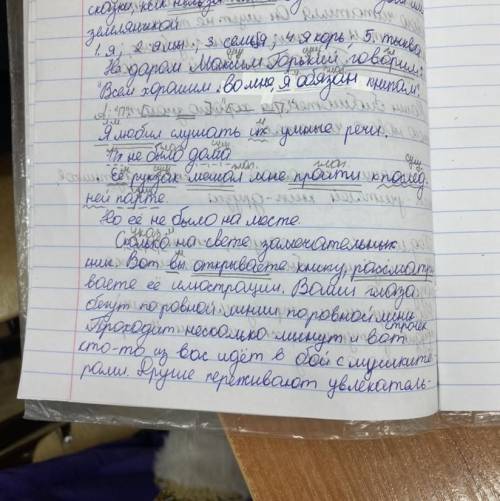 сказки, как нельзя
земляникой
1. я; 2 ямы. 3 семья; 4 якорь, 5. тыква
Не даром Максим Горький говорил:
"Всем хорошим во мне, я обязан книгам".
Я любил слушать их умные речи.
не было дома
Её рюкзак мешал мне пройти к послед
ней парте.
Но её не было на месте.
Сколько на свете замечательных
книг. Вот вы открываете книгу, рассматри
ваете её илюстрации. Ваши глаза
бегут по ровной линии по ровной линии
строчек
Проходит несколько минут и вот
кто-то из вас идёт в бой с мушкете
рами. Другие переживают увлекатель-